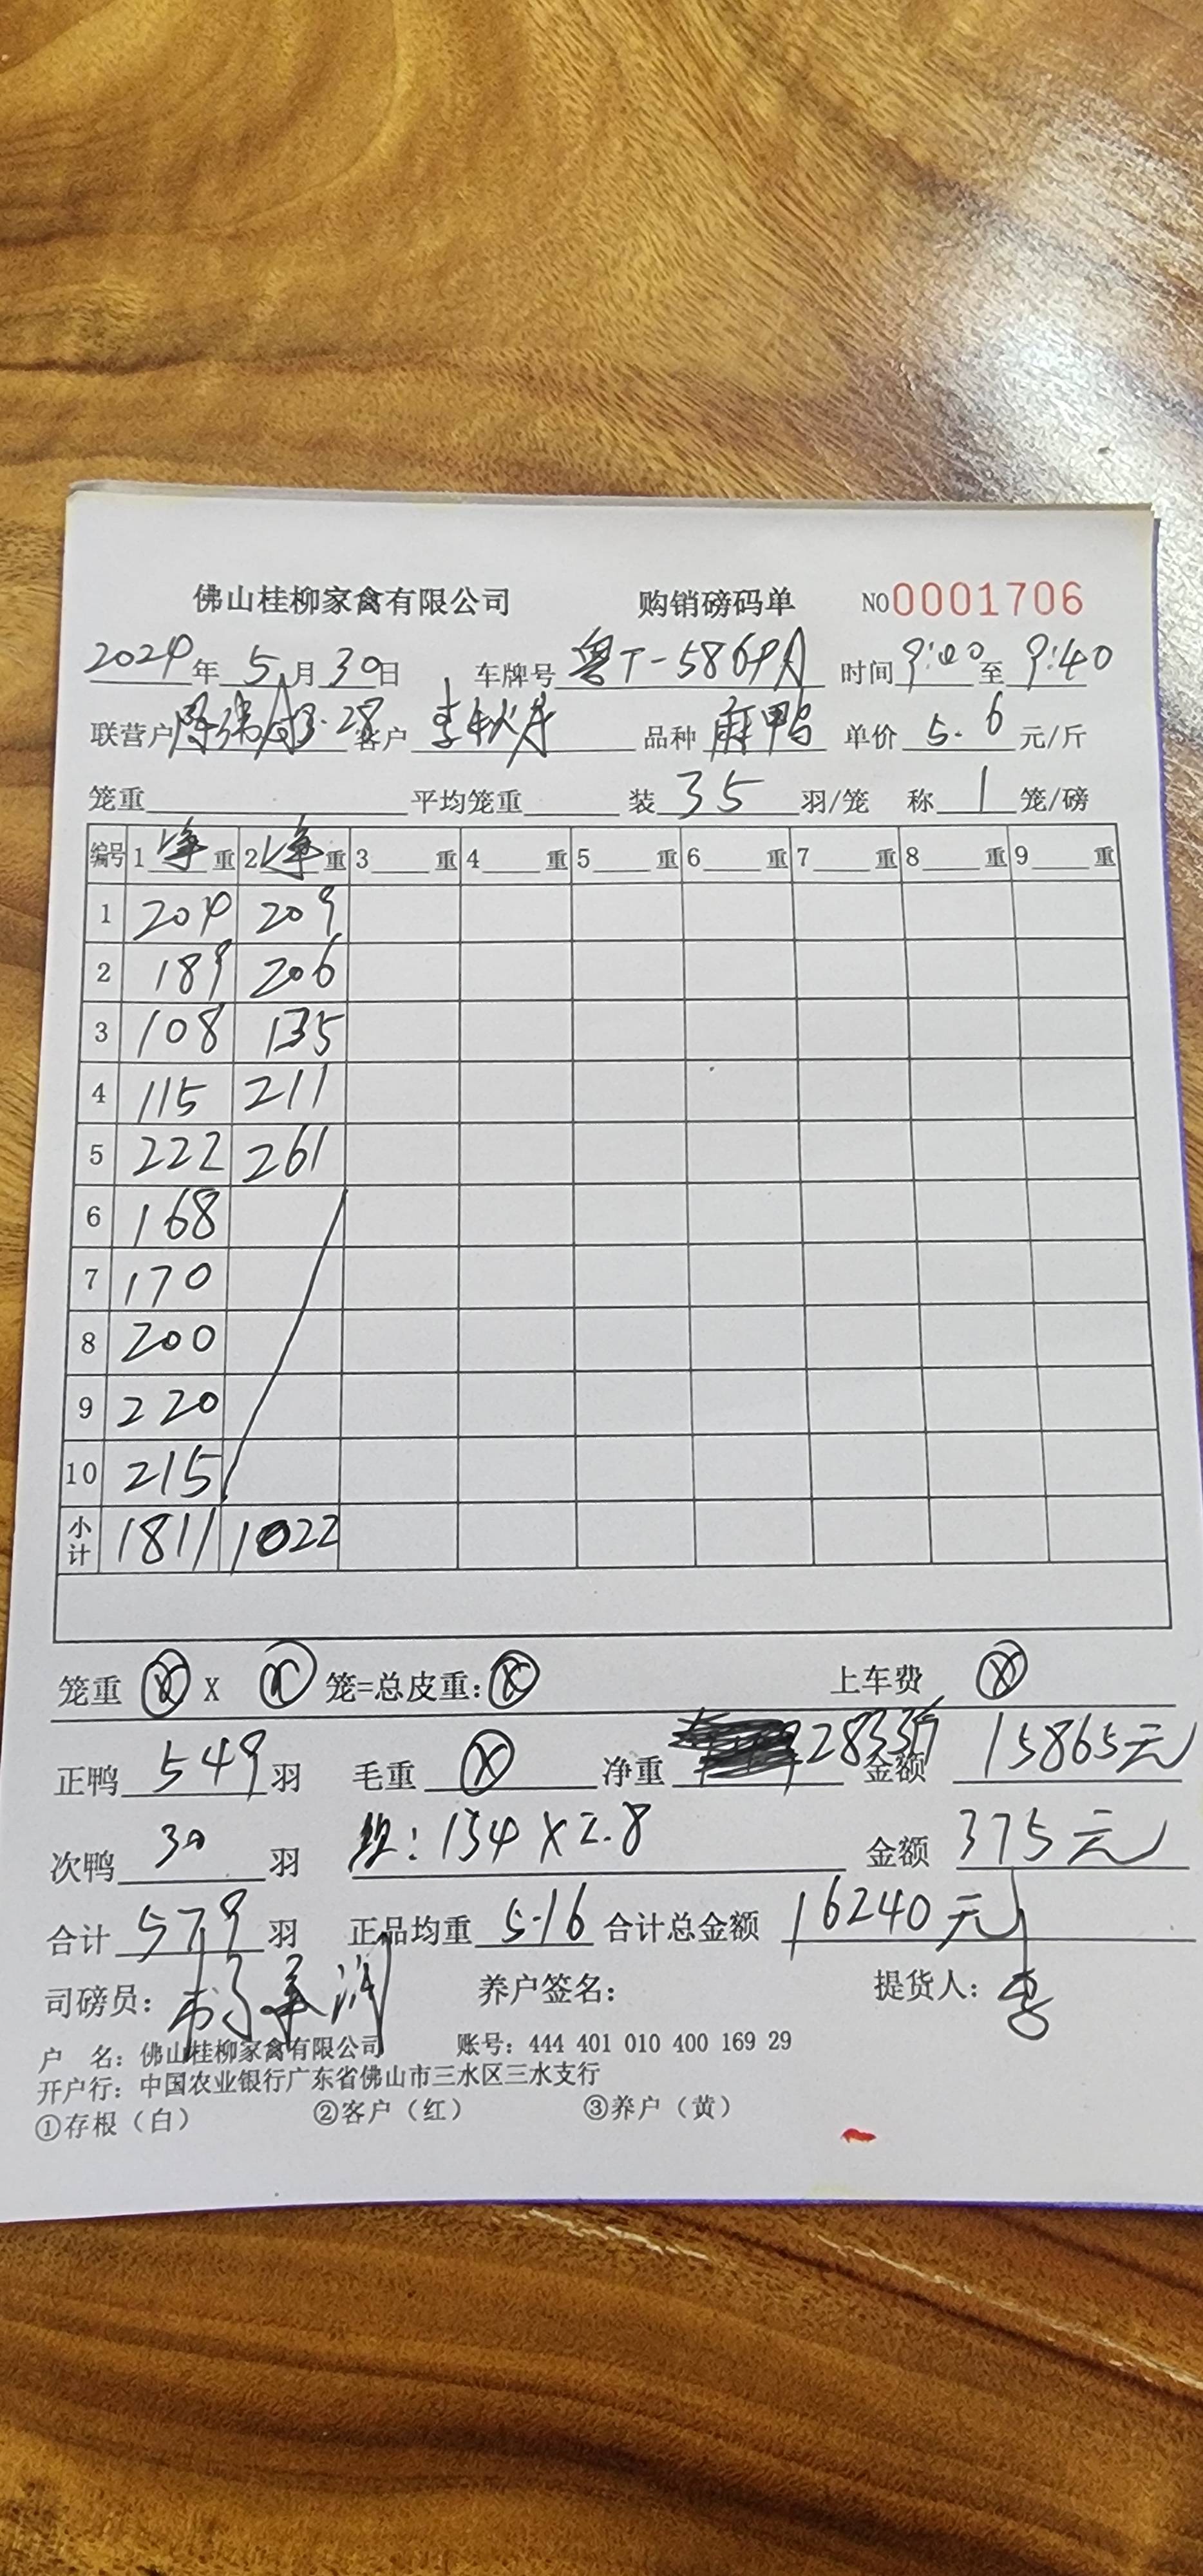 佛山桂柳家禽有限公司 购销磅码单 NO0001706
2024年 5月30日 车牌号 粤T-5869 时间9:00至9:40
联营户 3.28 客户 李秋 品种 麻鸭 单价 5.6 元/斤
笼重 平均笼重 装 35 羽/笼 称 1 笼/磅
编号 1 净 重 2 净 重 3 重 4 重 5 重 6 重 7 重 8 重 9 重
1 204 209
2 189 206
3 108 135
4 115 211
5 222 261
6 168
7 170
8 200
9 220
10 215
小计 1811 1022
笼重 ⓧ X ⓧ 笼=总皮重: ⓧ 上车费 ⓧ
正鸭 549 羽 毛重 ⓧ 净重 2833斤 金额 15865元
次鸭 30 羽 : 134×2.8 金额 375元
合计 579 羽 正品均重 5.16 合计总金额 16240元
司磅员: 养户签名: 提货人: 李
户 名: 佛山桂柳家禽有限公司 账号: 444 401 010 400 169 29
开户行: 中国农业银行广东省佛山市三水区三水支行
①存根（白） ②客户（红） ③养户（黄）